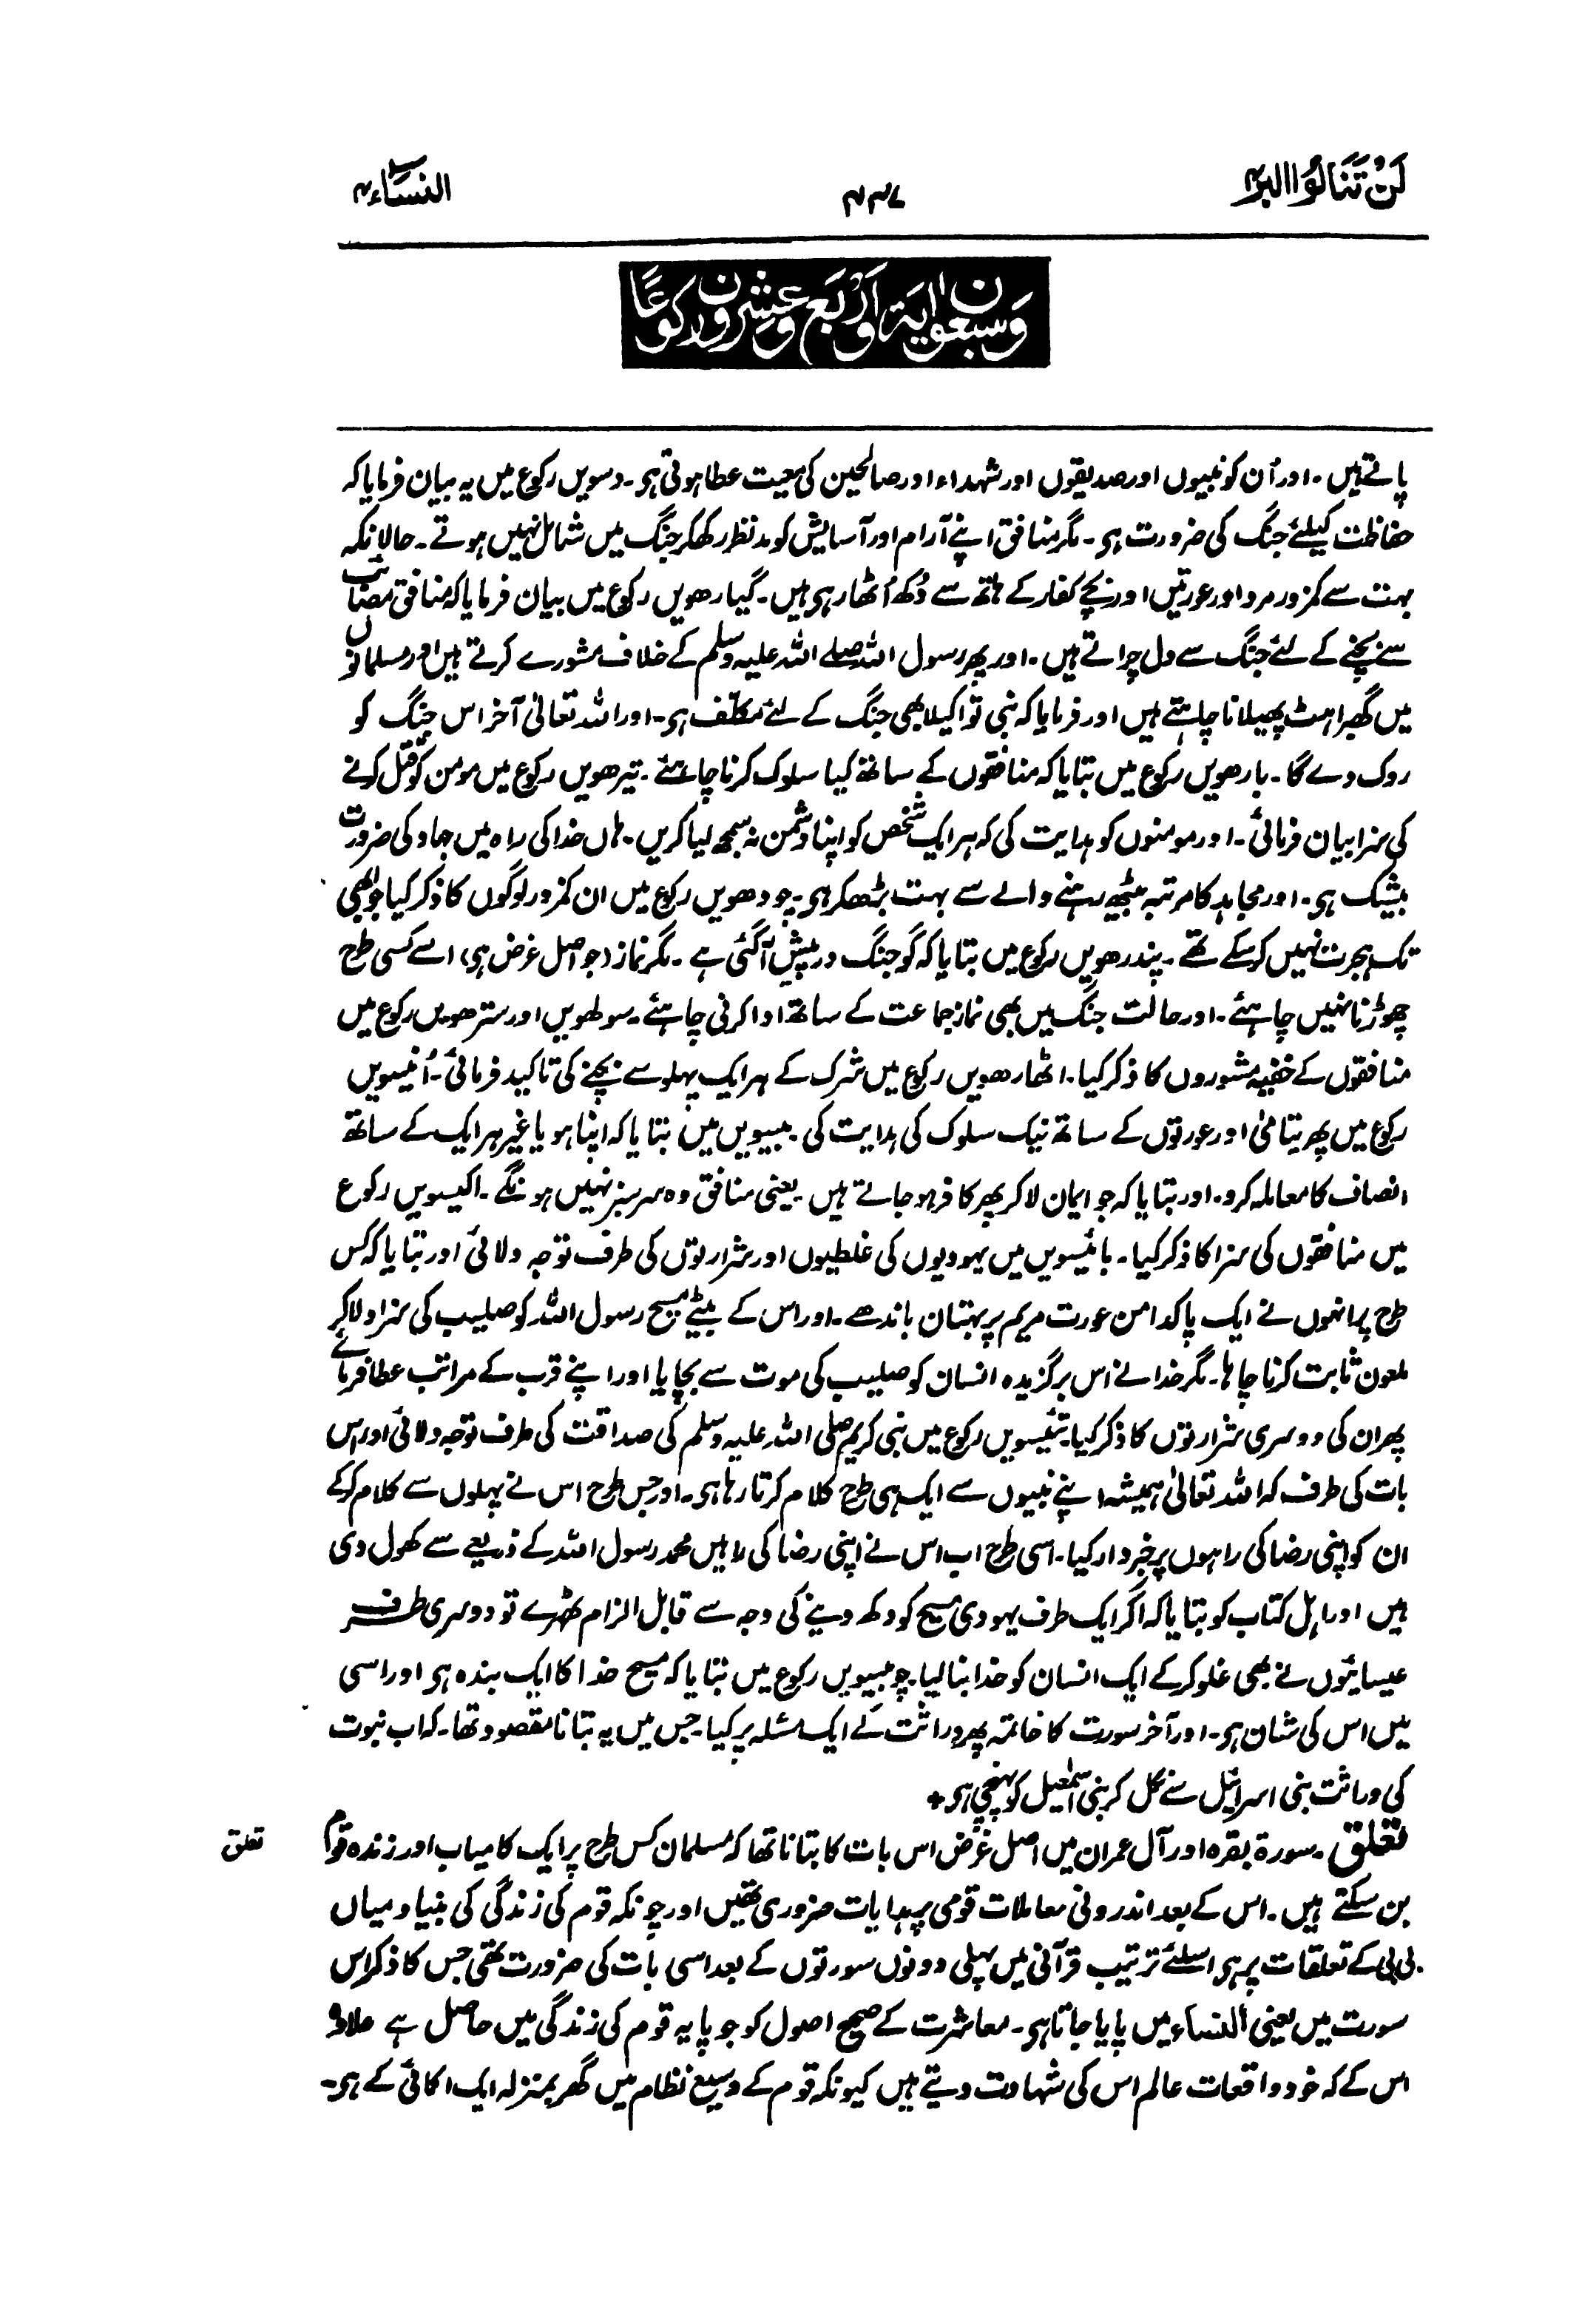 لَنْ تَنَالُوا البر ۴
۴۳۷
النساء ۴
وَسبعون اٰية وَّاَرْبَع وَّعِشرون ركوعًا
پاتے ہیں۔ اور اُن کو نبیوں اور صدیقوں اور شہداء اور صالحین کی معیت عطا ہوتی ہی۔ دسویں رکوع میں یہ بیان فرمایا کہ
حفاظت کیلئے جنگ کی ضرورت ہی۔ مگر منافق اپنے آرام اور آسایش کو مدنظر رکھکر جنگ میں شامل نہیں ہوتے۔ حالانکہ
بہت سے کمزور مرد اور عورتیں اور بچے کفار کے ہاتھ سے دُکھ اُٹھا رہی ہیں۔ گیارھویں رکوع میں بیان فرمایا کہ منافق مصائب
سے بچنے کے لئے جنگ سے دل چراتے ہیں۔ اور پھر رسول اللہ صلے اللہ علیہ وسلم کے خلاف مشورے کرتے ہیں اور مسلمانوں
میں گھبراہٹ پھیلانا چاہتے ہیں اور فرمایا کہ نبی تو اکیلا بھی جنگ کے لئے مکلّف ہی۔ اور اللہ تعالیٰ آخر اس جنگ کو
روک دے گا۔ بارھویں رکوع میں بتایا کہ منافقوں کے ساتھ کیا سلوک کرنا چاہئے۔ تیرھویں رکوع میں مومن کو قتل کرنے
کی سزا بیان فرمائی۔ اور مومنوں کو ہدایت کی کہ ہر ایک شخص کو اپنا دشمن نہ سمجھ لیا کریں۔ ہاں خدا کی راہ میں جہاد کی ضرورت
بیشک ہی۔ اور مجاہد کا مرتبہ بیٹھ رہنے والے سے بہت بڑھکر ہی۔ چودھویں رکوع میں ان کمزور لوگوں کا ذکر کیا جو ابھی
تک ہجرت نہیں کر سکے تھے۔ پندرھویں رکوع میں بتایا کہ گو جنگ درپیش آگئی ہے۔ مگر نماز (جو اصل غرض ہی) اسے کسی طرح
چھوڑنا نہیں چاہئے۔ اور حالت جنگ میں بھی نماز جماعت کے ساتھ ادا کرنی چاہئے۔ سولھویں اور سترھویں رکوع میں
منافقوں کے خفیہ مشوروں کا ذکر کیا۔ اٹھارھویں رکوع میں شرک کے ہر ایک پہلو سے بچنے کی تاکید فرمائی۔ اُنیسویں
رکوع میں پھر یتامیٰ اور عورتوں کے ساتھ نیک سلوک کی ہدایت کی۔ بیسویں میں بتایا کہ اپنا ہو یا غیر ہر ایک کے ساتھ
انصاف کا معاملہ کرو۔ اور بتایا کہ جو ایمان لا کر پھر کافر ہو جاتے ہیں یعنی منافق وہ سرسبز نہیں ہونگے۔ اکیسویں رکوع
میں منافقوں کی سزا کا ذکر کیا۔ بائیسویں میں یہودیوں کی غلطیوں اور شرارتوں کی طرف توجہ دلائی اور بتایا کہ کس
طرح پر انہوں نے ایک پاکدامن عورت مریم پر بہتان باندھے۔ اور اس کے بیٹے مسیح رسول اللہ کو صلیب کی سزا دلا کر
ملعون ثابت کرنا چاہا۔ مگر خدا نے اس برگزیدہ انسان کو صلیب کی موت سے بچایا اور اپنے قرب کے مراتب عطا فرمائے
پھر ان کی دوسری شرارتوں کا ذکر کیا۔ تئیسویں رکوع میں نبی کریم صلی اللہ علیہ وسلم کی صداقت کی طرف توجہ دلائی اور اس
بات کی طرف کہ اللہ تعالیٰ ہمیشہ اپنے نبیوں سے ایک ہی طرح کلام کرتا رہا ہی۔ اور جس طرح اس نے پہلوں سے کلام کرکے
ان کو اپنی رضا کی راہوں پر خبردار کیا۔ اسی طرح اب اس نے اپنی رضا کی راہیں محمد رسول اللہ کے ذریعے سے کھول دی
ہیں اور اہل کتاب کو بتایا کہ اگر ایک طرف یہودی مسیح کو دکھ دینے کی وجہ سے قابل الزام ٹھہرے تو دوسری طرف
عیسائیوں نے بھی غلو کرکے ایک انسان کو خدا بنا لیا۔ چوبیسویں رکوع میں بتایا کہ مسیح خدا کا ایک بندہ ہی اور اسی
میں اس کی شان ہی۔ اور آخر سورت کا خاتمہ پھر وراثت کے ایک مسئلہ پر کیا۔ جس میں یہ بتانا مقصود تھا۔ کہ اب نبوت
کی وراثت بنی اسرائیل سے نکل کر بنی اسمٰعیل کو پہنچی ہی +
تعلق۔ سورۃ بقرہ اور آل عمران میں اصل غرض اس بات کا بتانا تھا کہ مسلمان کس طرح پر ایک کامیاب اور زندہ قوم
تعلق
بن سکتے ہیں۔ اس کے بعد اندرونی معاملات قومی پر ہدایات ضروری تھیں اور چونکہ قوم کی زندگی کی بنیاد میاں
بی بی کے تعلقات پر ہی اسلئے ترتیب قرآنی میں پہلی دونوں سورتوں کے بعد اسی بات کی ضرورت تھی جس کا ذکر اس
سورت میں یعنی النساء میں پایا جاتا ہی۔ معاشرت کے صحیح اصول کو جو پایہ قوم کی زندگی میں حاصل ہے علاوہ
اس کے کہ خود واقعات عالم اس کی شہادت دیتے ہیں کیونکہ قوم کے وسیع نظام میں گھر بمنزلہ ایک اکائی کے ہی۔